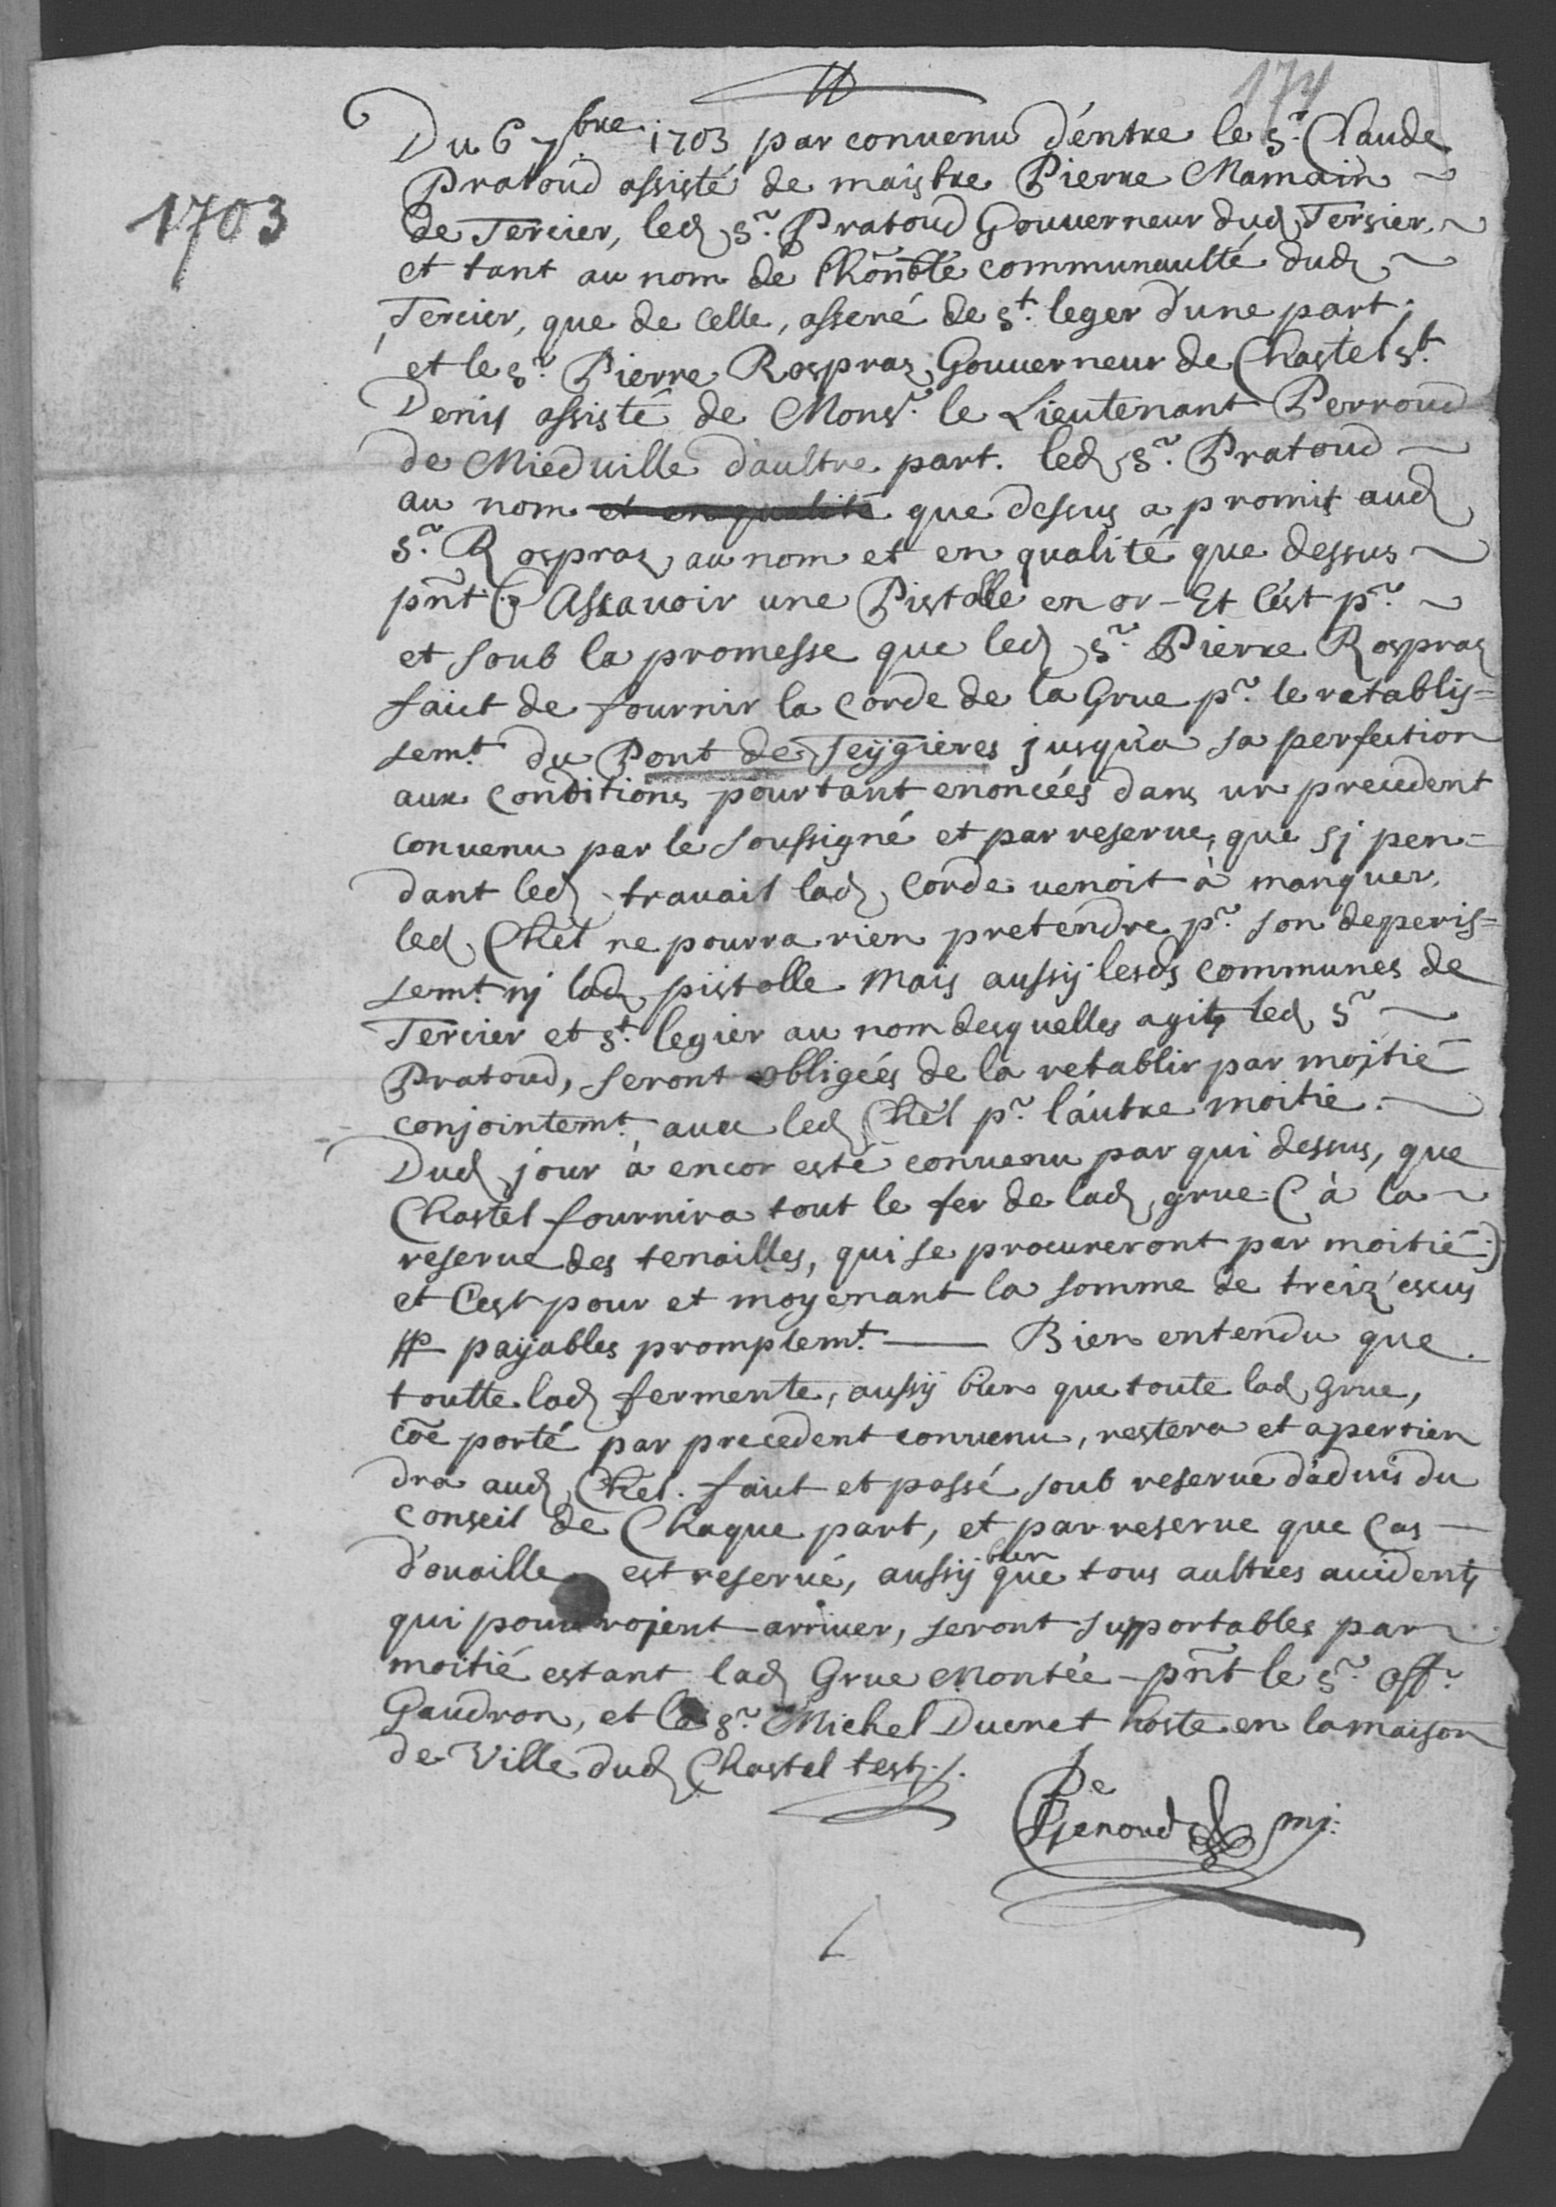 174
1703
Du 6 7bre 1703 par convenu d'éntre le Sr. Claude
Pratoud assisté de maistre Pierre Mamain
de Tercier, led. Sr. Pratoud Gouuerneur dud. Tersier,
et tant au nom de lhonble communaulté dud.
Tercier, que de celle, asseré de St. leger d'une part;
et le Sr. Pierre Rospraz Gouuerneur de Chastel St.
Denis assisté de Monsr. le Lieutenant Perroud
de Miedville d'aultre part. led. Sr. Pratoud
au nom et en qualité que dessus a promis aud.
Sr. Rospraz, au nom et en qualité que dessus
pñt Assavoir une Pistolle en or - Et c'est pr.
et soub la promesse que led. Sr. Pierre Rospraz
faict de fournir la corde de la Grue pr. le retablis=
semt. du Pont de Feÿgieres jusqu'a sa perfection
aux conditions pourtant enoncées dans un precedent
convenu par le soussigné et par reserue, que sj pen=
dant led. travail lad. corde venoit à manquer,
led. Chêl ne pourra rien pretendre pr. son deperis=
semt. nj lad. pistolle mais aussy lesds communes de
Tercier et St. legier au nom desquelles agit led. Sr
Pratoud, seront obligées de la retablir par moitié
conjointemt. auec led. Chêl pr. l'autre moitié.
Dud. jour à encor esté convenu par qui dessus, que
Chastel fournira tout le fer de lad. grue (à la
reserue des tenailles, qui se procureront par moitié:)
et c'est pour et moyenant la somme de treiz' escus
payables promptemt. Bien entendu que
toutte lad. fermente, aussy bien que toute lad. Grue,
cõe porté par precedent convenu, restera et apertien
dra aud. Chel. fait et passé soub reserue d'aduis du
Conseil de Chaque part, et par reserue que Cas
d'ovaille est reserué, aussy bien que tous aultres accidents
qui pourrojent arriuer, seront supportables par
moitié estant lad. Grue Montée - pñt le Sr. off.
Gaudron, et le Sr. Michel Ducret hoste en la maison
de Ville dud. Chastel test.
Pe Genoud mj: